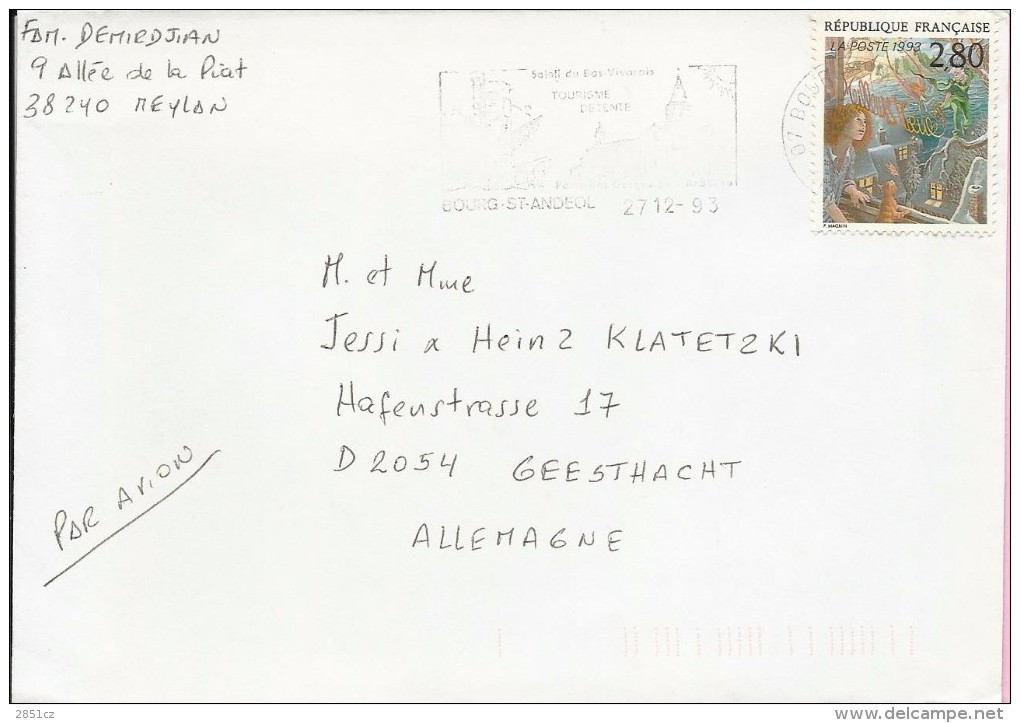 FAM. DEMIRDJIAN
9 Allée de la Piat
38240 MEYLAN
RÉPUBLIQUE FRANÇAISE
LA POSTE 1993 2,80
Soleil du Bas-Vivarais
TOURISME
DETENTE
BOURG-ST-ANDEOL 27 12-93
07 BOURG
M. et Mme
Jessi & Heinz KLATETZKI
Hafenstrasse 17
D 2054 GEESTHACHT
ALLEMAGNE
PAR AVION
2851cz
www.delcampe.net